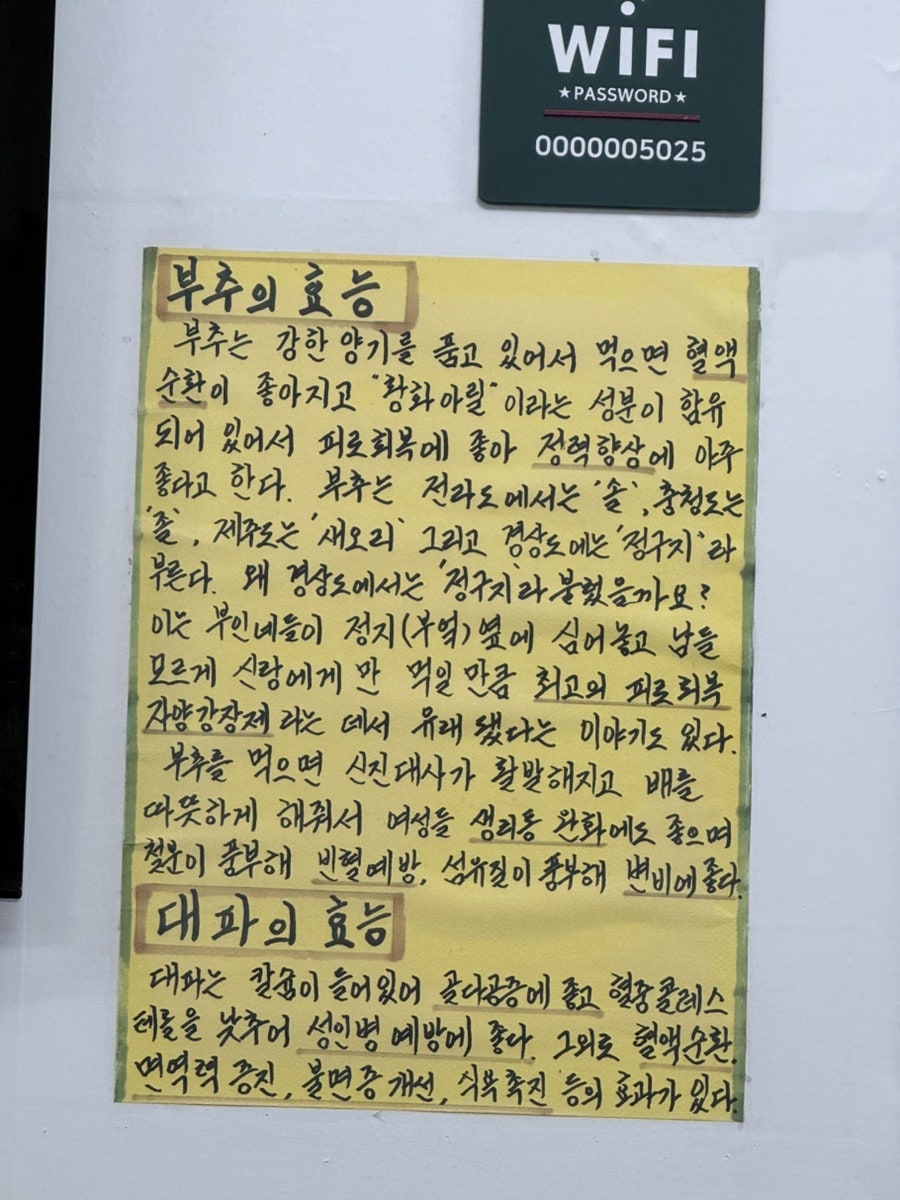 WIFI
★PASSWORD★
0000005025
부추의 효능
부추는 강한 양기를 품고 있어서 먹으면 혈액
순환이 좋아지고 "황화아릴"이라는 성분이 함유
되어 있어서 피로회복에 좋아 정력향상에 아주
좋다고 한다. 부추는 전라도에서는 '솔', 충청도는
'졸', 제주도는 '새오리' 그리고 경상도에는 '정구지'라
부른다. 왜 경상도에서는 '정구지'라 불렀을까요?
이는 부인네들이 정지(부엌)옆에 심어놓고 남들
모르게 신랑에게 만 먹일 만큼 최고의 피로회복
자양강장제 라는 데서 유래 됐다는 이야기도 있다.
부추를 먹으면 신진대사가 활발해지고 배를
따뜻하게 해줘서 여성들 생리통 완화에도 좋으며
철분이 풍부해 빈혈예방, 섬유질이 풍부해 변비에 좋다.
대파의 효능
대파는 칼슘이 들어있어 골다공증에 좋고 혈중콜레스
테롤을 낮추어 성인병 예방에 좋다. 그외로 혈액순환,
면역력 증진, 불면증 개선, 식욕촉진 등의 효과가 있다.